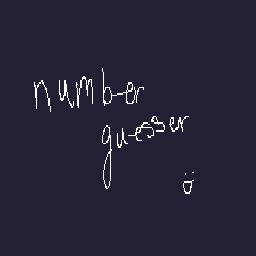 number
guesser